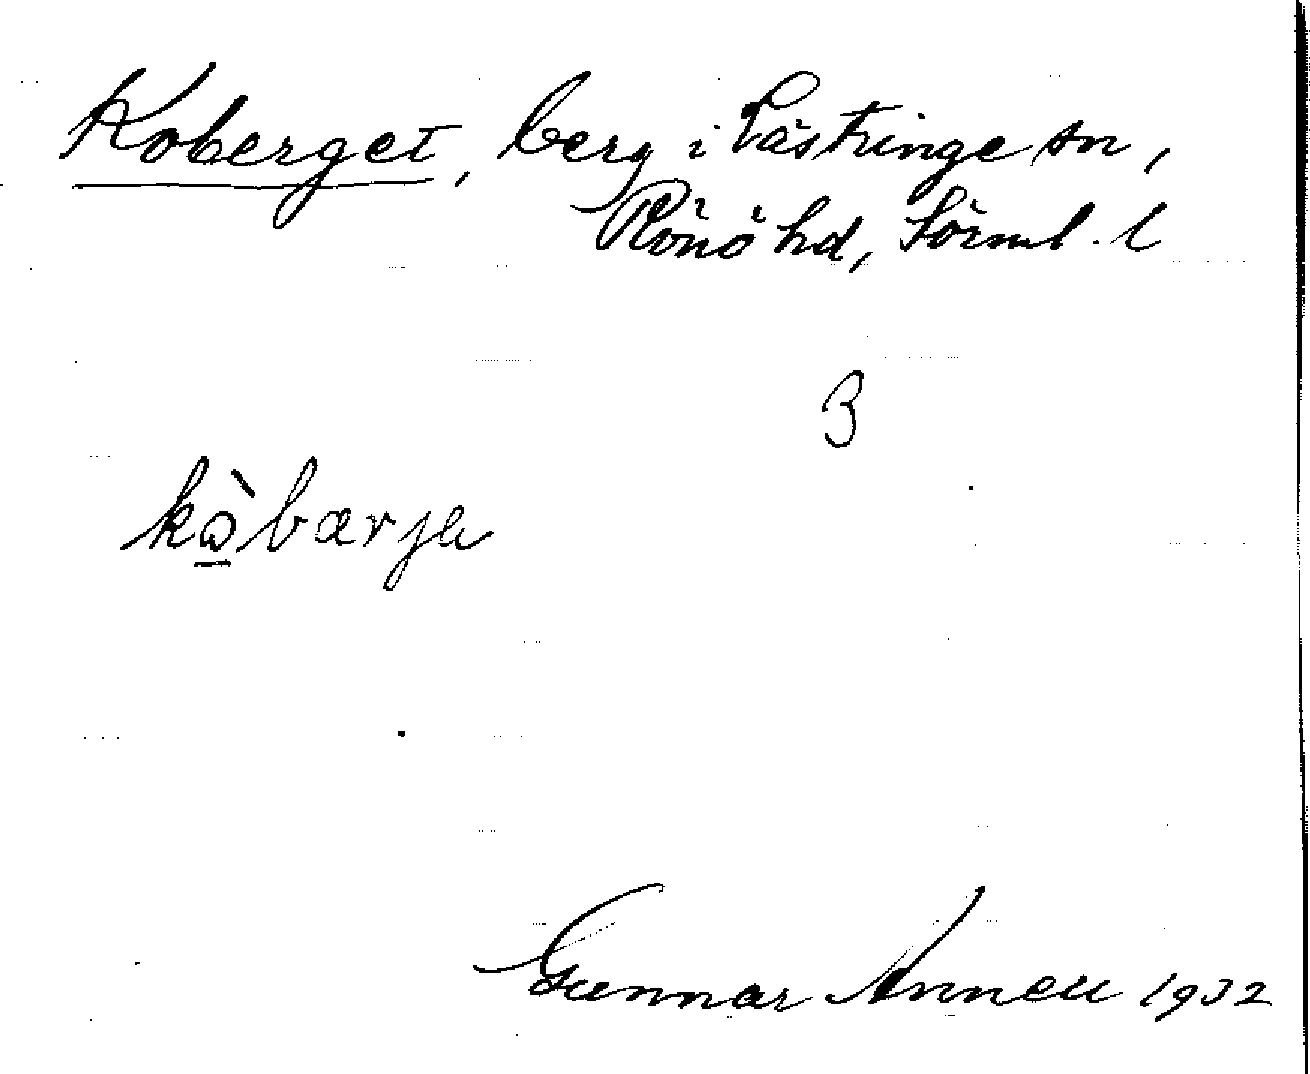 Koberget, berg i Västringe sn,
Rönö hd, Sörml. l
3
Gunnar Annell 1932